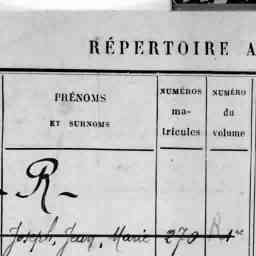 RÉPERTOIRE A
PRÉNOMS
ET SURNOMS
NUMÉROS
ma-
tricules
NUMÉRO
du
volume
- R -
Joseph, Jacq, Marie 270